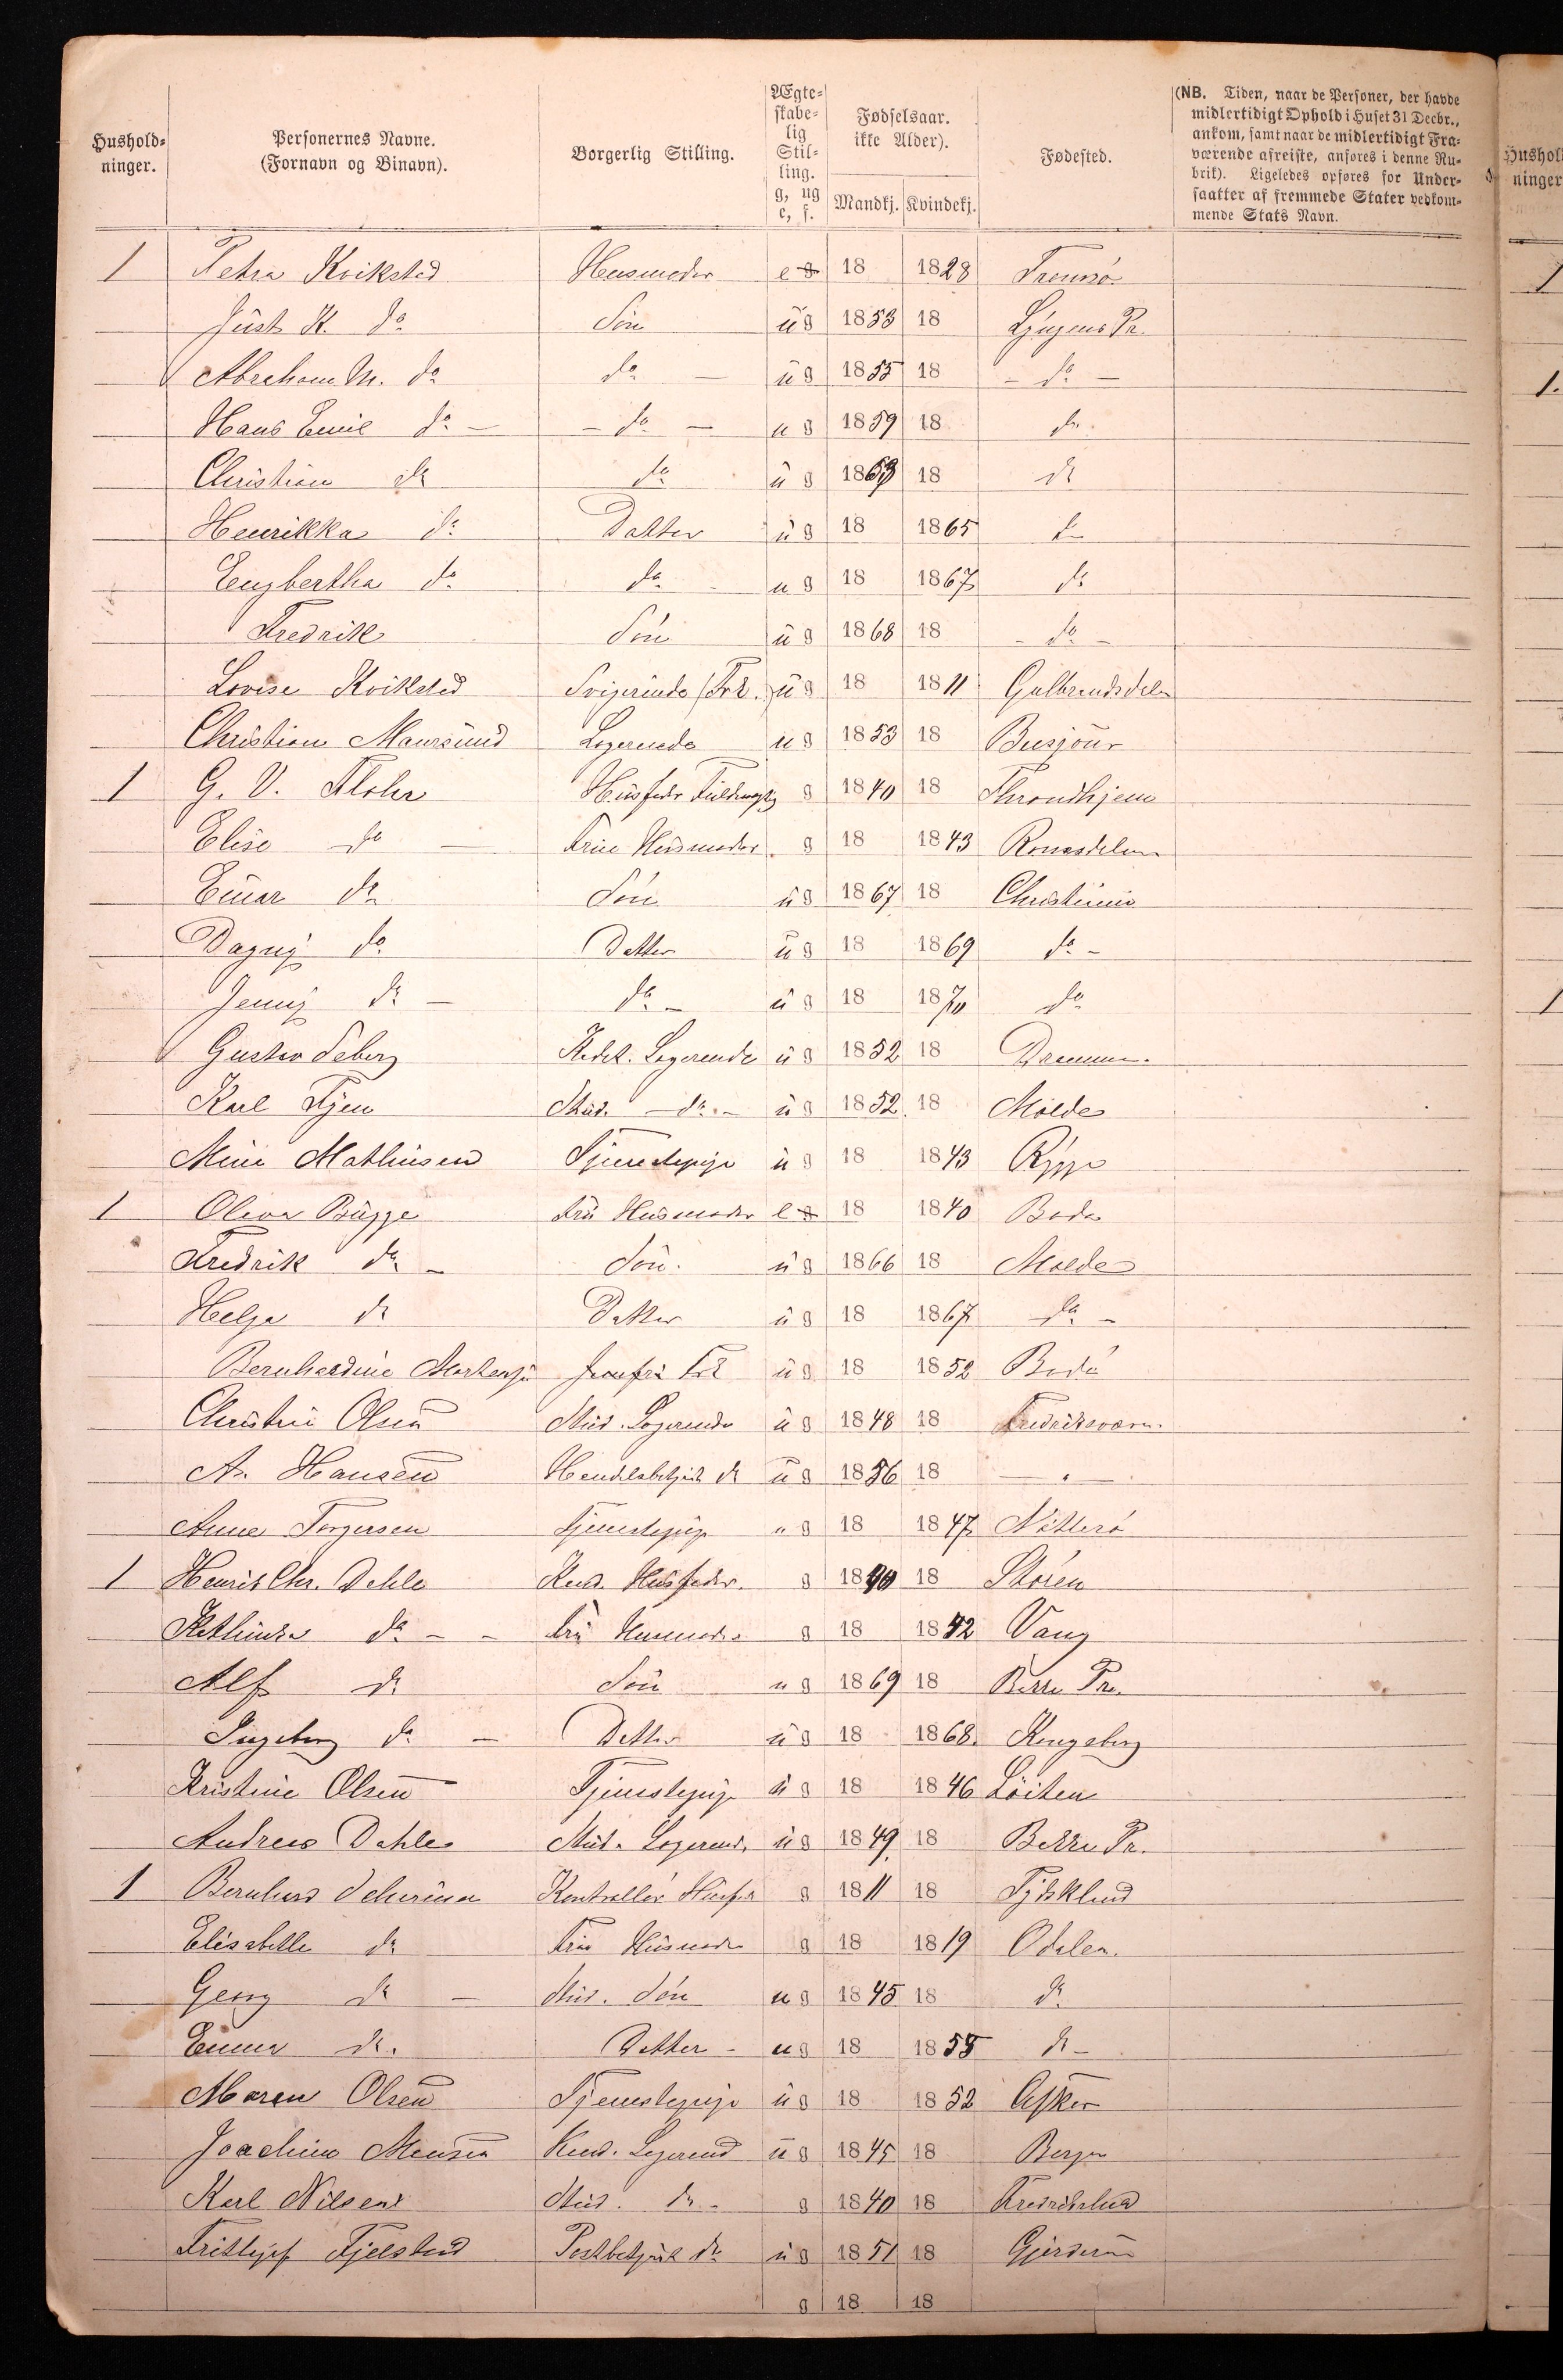 Hushold-
ninger.
Personernes Navne.
(Fornavn og Binavn).
Borgerlig Stilling.
Ægte-
skabe-
lig
Stil-
ling.
g, ug
e, f.
Fødselsaar.
ikke Alder).
Mandkj. Kvindekj.
Fødested.
(NB. Tiden, naar de Personer, der havde
midlertidigt Ophold i Huset 31 Decbr.,
ankom, samt naar de midlertidigt Fra-
værende afreiste, anføres i denne Ru-
brik). Ligeledes opføres for Under-
saatter af fremmede Stater vedkom-
mende Stats Navn.
1 Petra Kviksted Husmoder e g 18 1828 Tromsø
Just K. do Søn ug 1853 18 Lyngens Pr.
Abraham M. do do ug 1855 18 do
Hans Emil do do ug 1859 18 do
Christian do do ug 1863 18 do
Henrikka do Datter ug 18 1865 do
Engbertha do do ug 18 1867 do
Fredrik Søn ug 1868 18 do
Lovise Kviksted Svigerinde (Frk.) ug 18 1811 Gulbrandsdalen
Christian Maursund Logerende ug 1853 18
1 G. V. Flohr Husfader Fuldmægtig g 1840 18 Throndhjem
Elise do Frue Husmoder g 18 1843 Romsdalen
Einar do Søn ug 1867 18 Christiania
Dagny do Datter ug 18 1869 do
Jenny do do ug 18 1870 do
Gustav Seberg Kadet. Logerende ug 1852 18 Drammen
Karl Tyen Stud. do ug 1852 18 Molde
Mina Mathiesen Tjenestepige ug 18 1843 Rygge
1 Oliva Bugge Fru Husmoder e g 18 1840 Bodø
Fredrik do Søn ug 1866 18 Molde
Helga do Datter ug 18 1867 do
Bernhardine Jomfru Frk ug 18 1852 Bodø
Olsen Stud. Logerende ug 1848 18 Fredriksværn
A. Hansen Handelsbetjent do ug 1856 18 "
Anne Torgersen Tjenestepige ug 18 1847 Nøtterø
1 Henrik Chr. Dahle Kand. Husfader g 1840 18 Støren
Kathinka do Fru Husmoder g 18 1842 Vang
Alf do Søn ug 1869 18 Pr.
Ingeborg do Datter ug 18 1868 Kongsberg
Kristine Olsen Tjenestepige ug 18 1846 Løiten
Andreas Dahle Stud. Logerende ug 1849 18 Pr.
1 Bernhard Kontrollør Husfader g 1811 18 Tydskland
Elisabethe do Frue Husmoder g 18 1819 Odalen
Georg do Stud. Søn ug 1845 18 do
Emma do Datter ug 18 1855 do
Maren Olsen Tjenestepige ug 18 1852 Asker
Joachim Monsen Kand. Logerend ug 1845 18 Bergen
Karl Nilsen Stud. do g 1840 18 Fredrikshald
Frithjof Fjelstad Postbetjent do ug 1851 18 Gjerderum
g 18 18
Hushol
ninger
1
1.
1